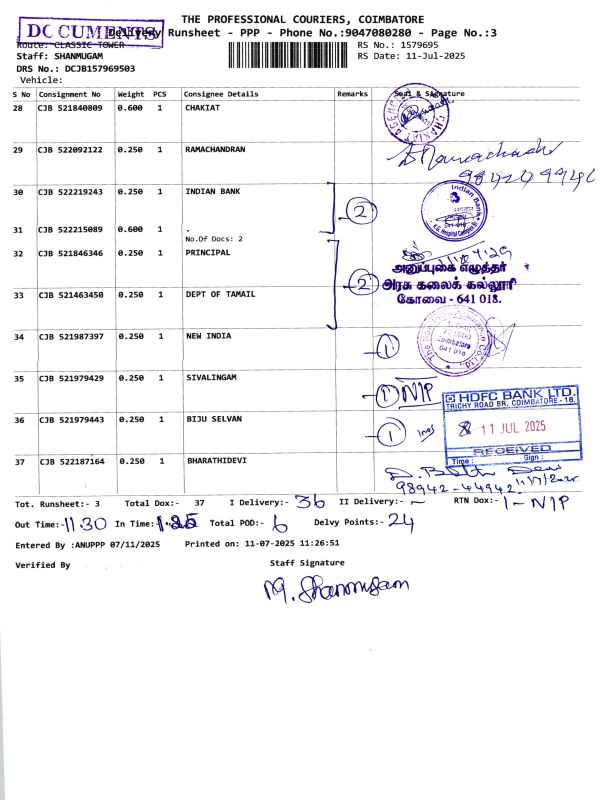 THE PROFESSIONAL COURIERS, COIMBATORE
DOCUMENTS
Delivery Runsheet - PPP - Phone No.:9047080280 - Page No.:3
Route: CLASSIC TOWER
RS No.: 1579695
Staff: SHANMUGAM
RS Date: 11-Jul-2025
DRS No.: DCJB157969503
Vehicle:
S No Consignment No Weight PCS Consignee Details Remarks Seal & Signature
28 CJB 521840809 0.600 1 CHAKIAT
29 CJB 522092122 0.250 1 RAMACHANDRAN
30 CJB 522219243 0.250 1 INDIAN BANK
2
Indian Bank
641 018
31 CJB 522215089 0.600 1 .
No.Of Docs: 2
32 CJB 521846346 0.250 1 PRINCIPAL
அனுப்புகை எழுத்தர்
2
அரசு கலைக் கல்லூரி
கோவை - 641 018.
33 CJB 521463450 0.250 1 DEPT OF TAMAIL
34 CJB 521987397 0.250 1 NEW INDIA
1
Coimbatore
641 018
35 CJB 521979429 0.250 1 SIVALINGAM
1 N/P
HDFC BANK LTD.
TRICHY ROAD BR, COIMBATORE - 18.
36 CJB 521979443 0.250 1 BIJU SELVAN
1
11 JUL 2025
RECEIVED
Time: Sign:
37 CJB 522187164 0.250 1 BHARATHIDEVI
98942-44942
Tot. Runsheet:- 3 Total Dox:- 37 I Delivery:- 36 II Delivery:- - RTN Dox:- 1-N/P
Out Time:- 11.30 In Time:- Total POD:- 6 Delvy Points:- 24
Entered By :ANUPPP 07/11/2025 Printed on: 11-07-2025 11:26:51
Verified By
Staff Signature
M. Shanmugam